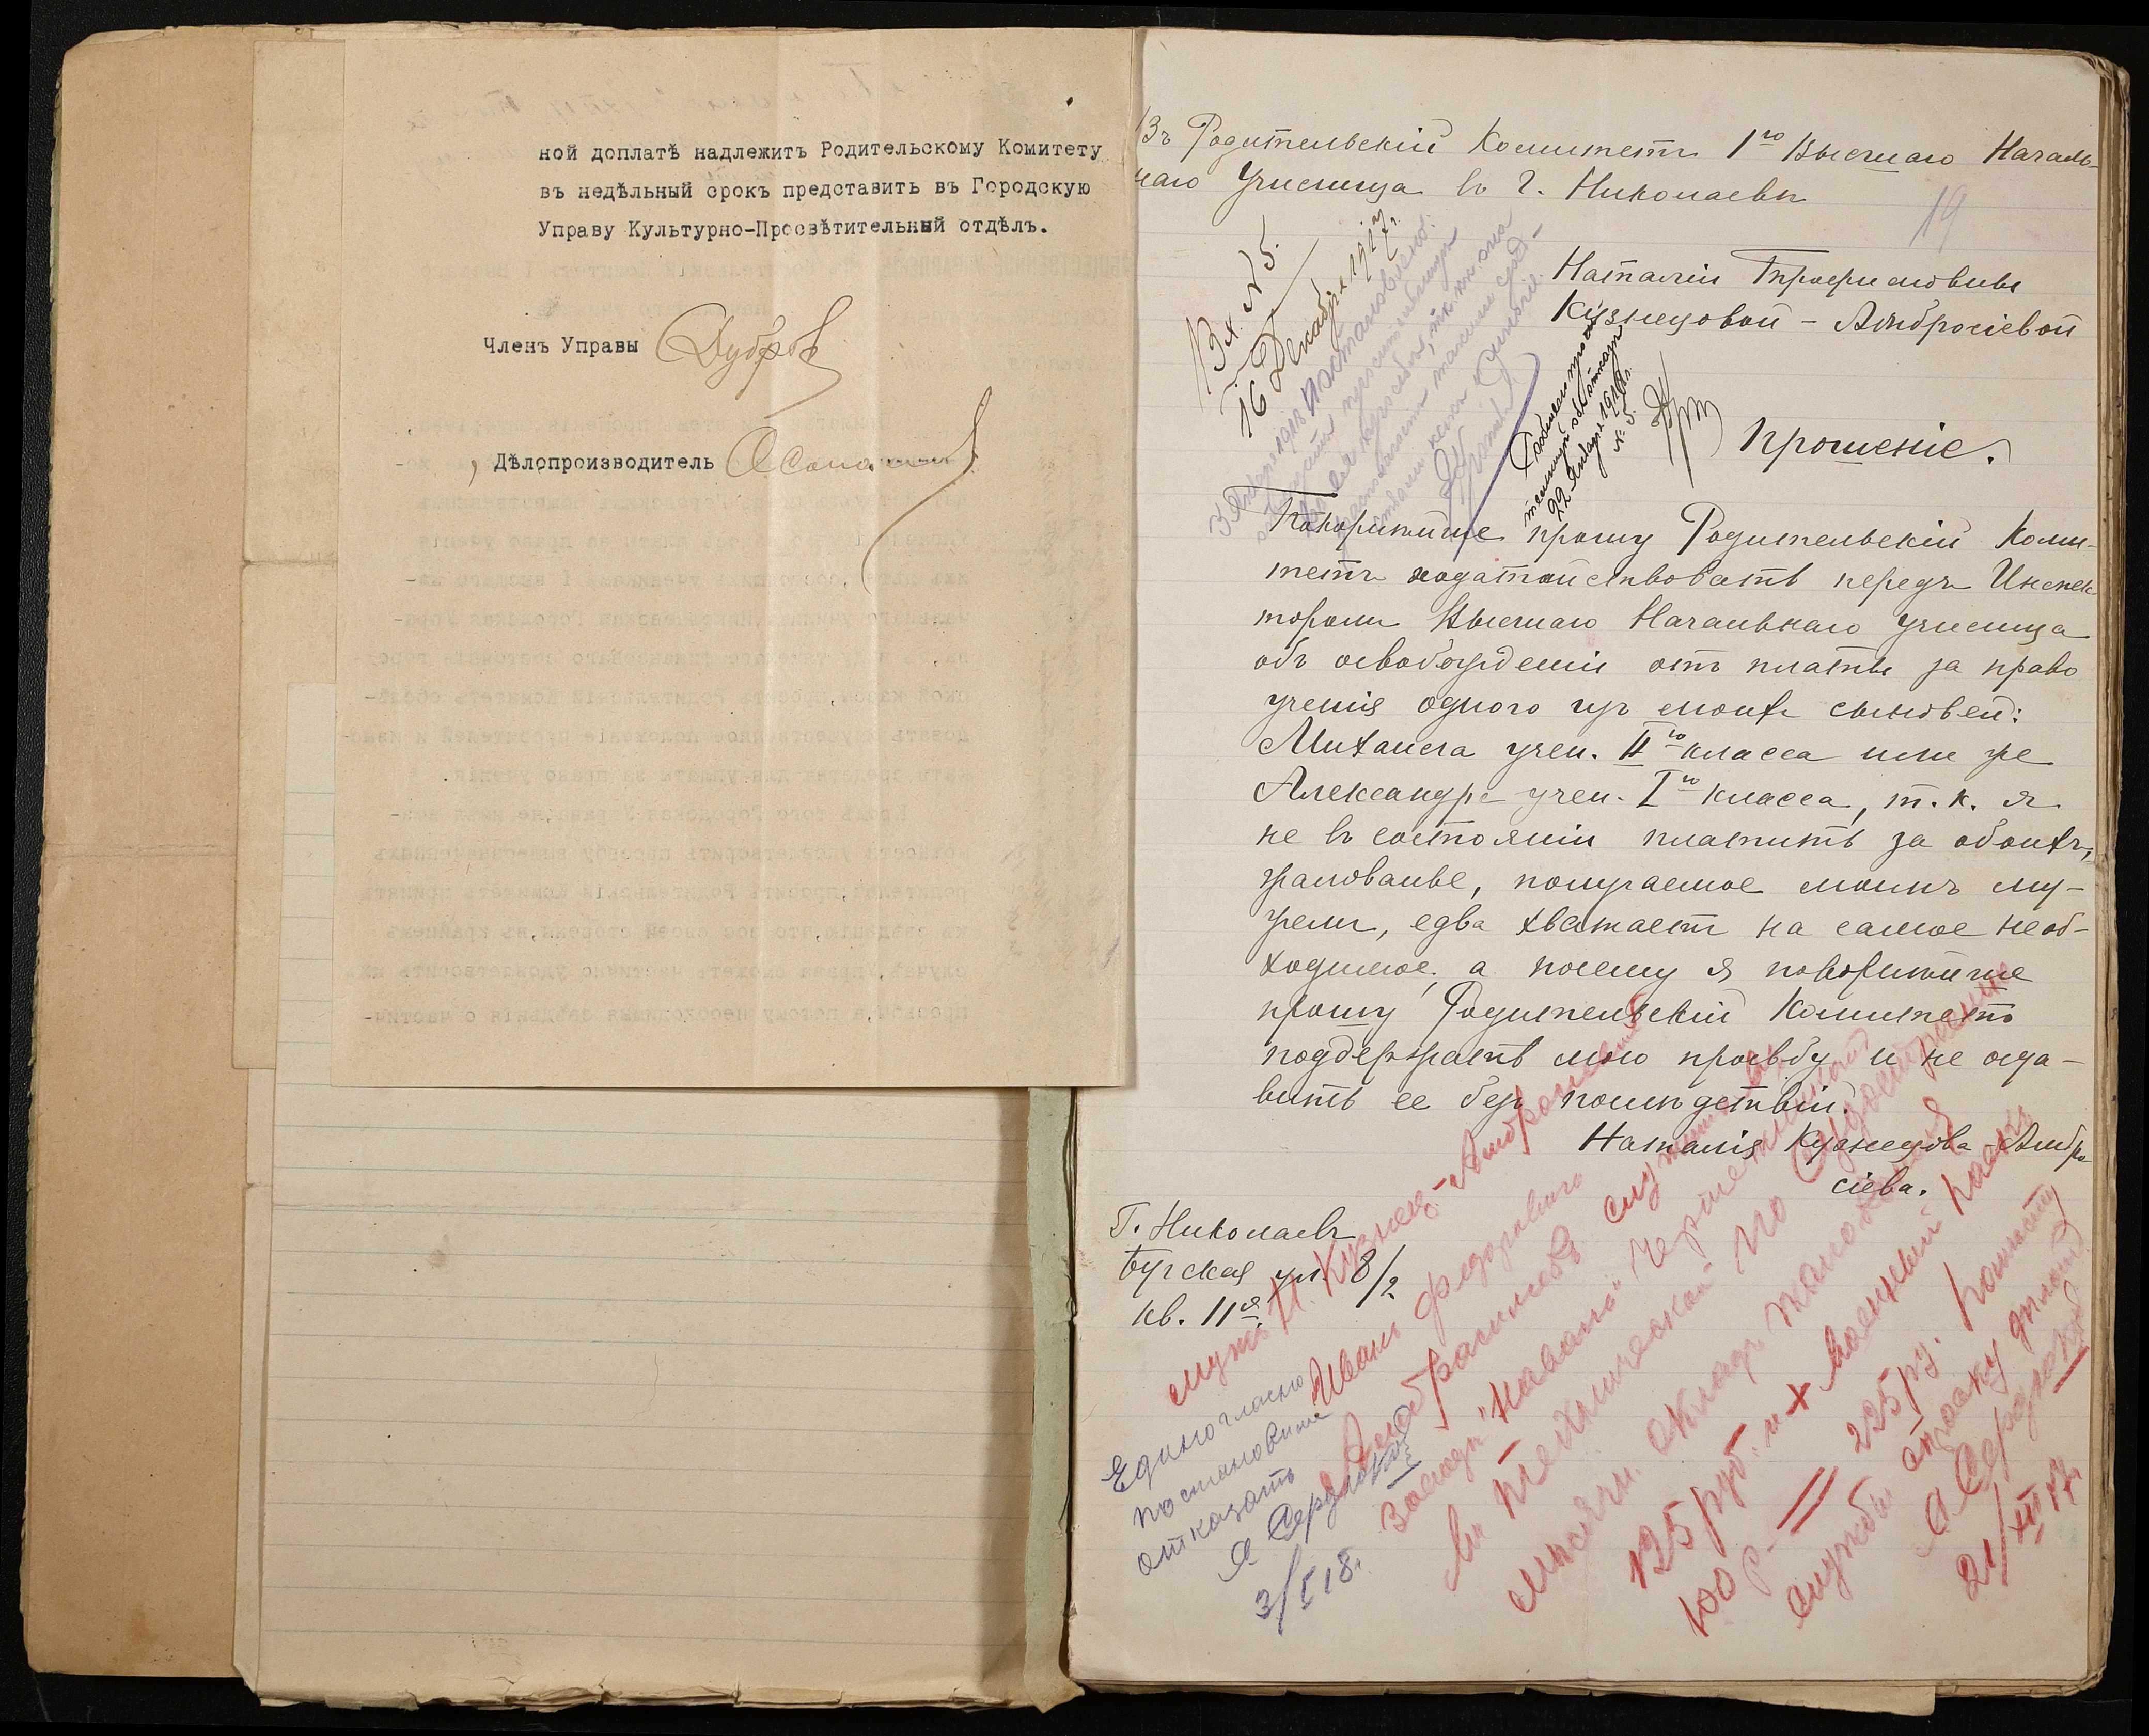 ной доплатѣ надлежитъ Родительскому Комитету
въ недѣльный срокъ представить въ Городскую
Управу Культурно-Просвѣтительный отдѣлъ.
Членъ Управы
Дѣлопроизводитель
Въ Родительскій Комитетъ 1го Высшаго Началь-
наго Училища въ г. Николаевѣ
19
Наталіи Трофимовны
Кузнецовой - Амбросіевой
Вх. № 5.
16 Декабря 1917 г.
22 Января 1918 г.
№ 5.
Прошеніе.
Покорнѣйше прошу Родительскій Коми-
тетъ ходатайствовать передъ Инспек
торомъ Высшаго Начальнаго училища
объ освобожденіи отъ платы за право
ученія одного изъ моихъ сыновей:
Михаила учен. IIго класса или же
Александра учен. Iго класса, т. к. я
не въ состояніи платить за обоихъ,
жалованье, получаемое моимъ му-
жемъ, едва хватаетъ на самое необ-
ходимое, а посему я покорнѣйше
прошу Родительскій Комитетъ
поддержать мою просьбу и не оста-
вить ее безъ послѣдствій.
Наталія Кузнецова-Амбро
сіева.
Г. Николаевъ
Бугская ул. 8/2
кв. 11я.
мужъ Н. Кузнец.-Амбросіевой
Иванъ Федоровичъ
Амбросимовъ служитъ на
Заводѣ "Наваль" Чертежникомъ
въ Технической по Судостроенію
мѣсячн. окладъ жалованья
125 руб. и + военный паекъ
100 р. = 225 ру.
службы
21/XII 17 г.
Единогласно
постановили
отказать
А Сердюковъ
3/I 18.